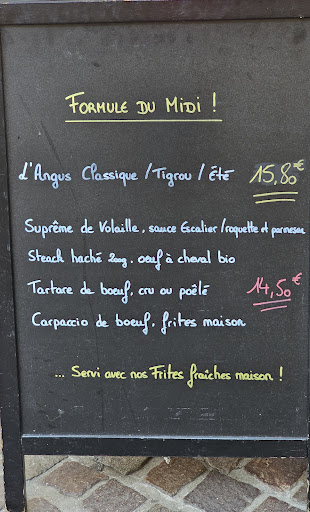 FORMULE DU MIDI !
d'Angus Classique / Tigrou / été 15,80€
Suprême de Volaille, sauce Escalier / roquette et parmesan
Steack haché 200g, oeuf à cheval bio
Tartare de boeuf, cru ou poêlé 14,50€
Carpaccio de boeuf, frites maison
... Servi avec nos Frites fraîches maison !